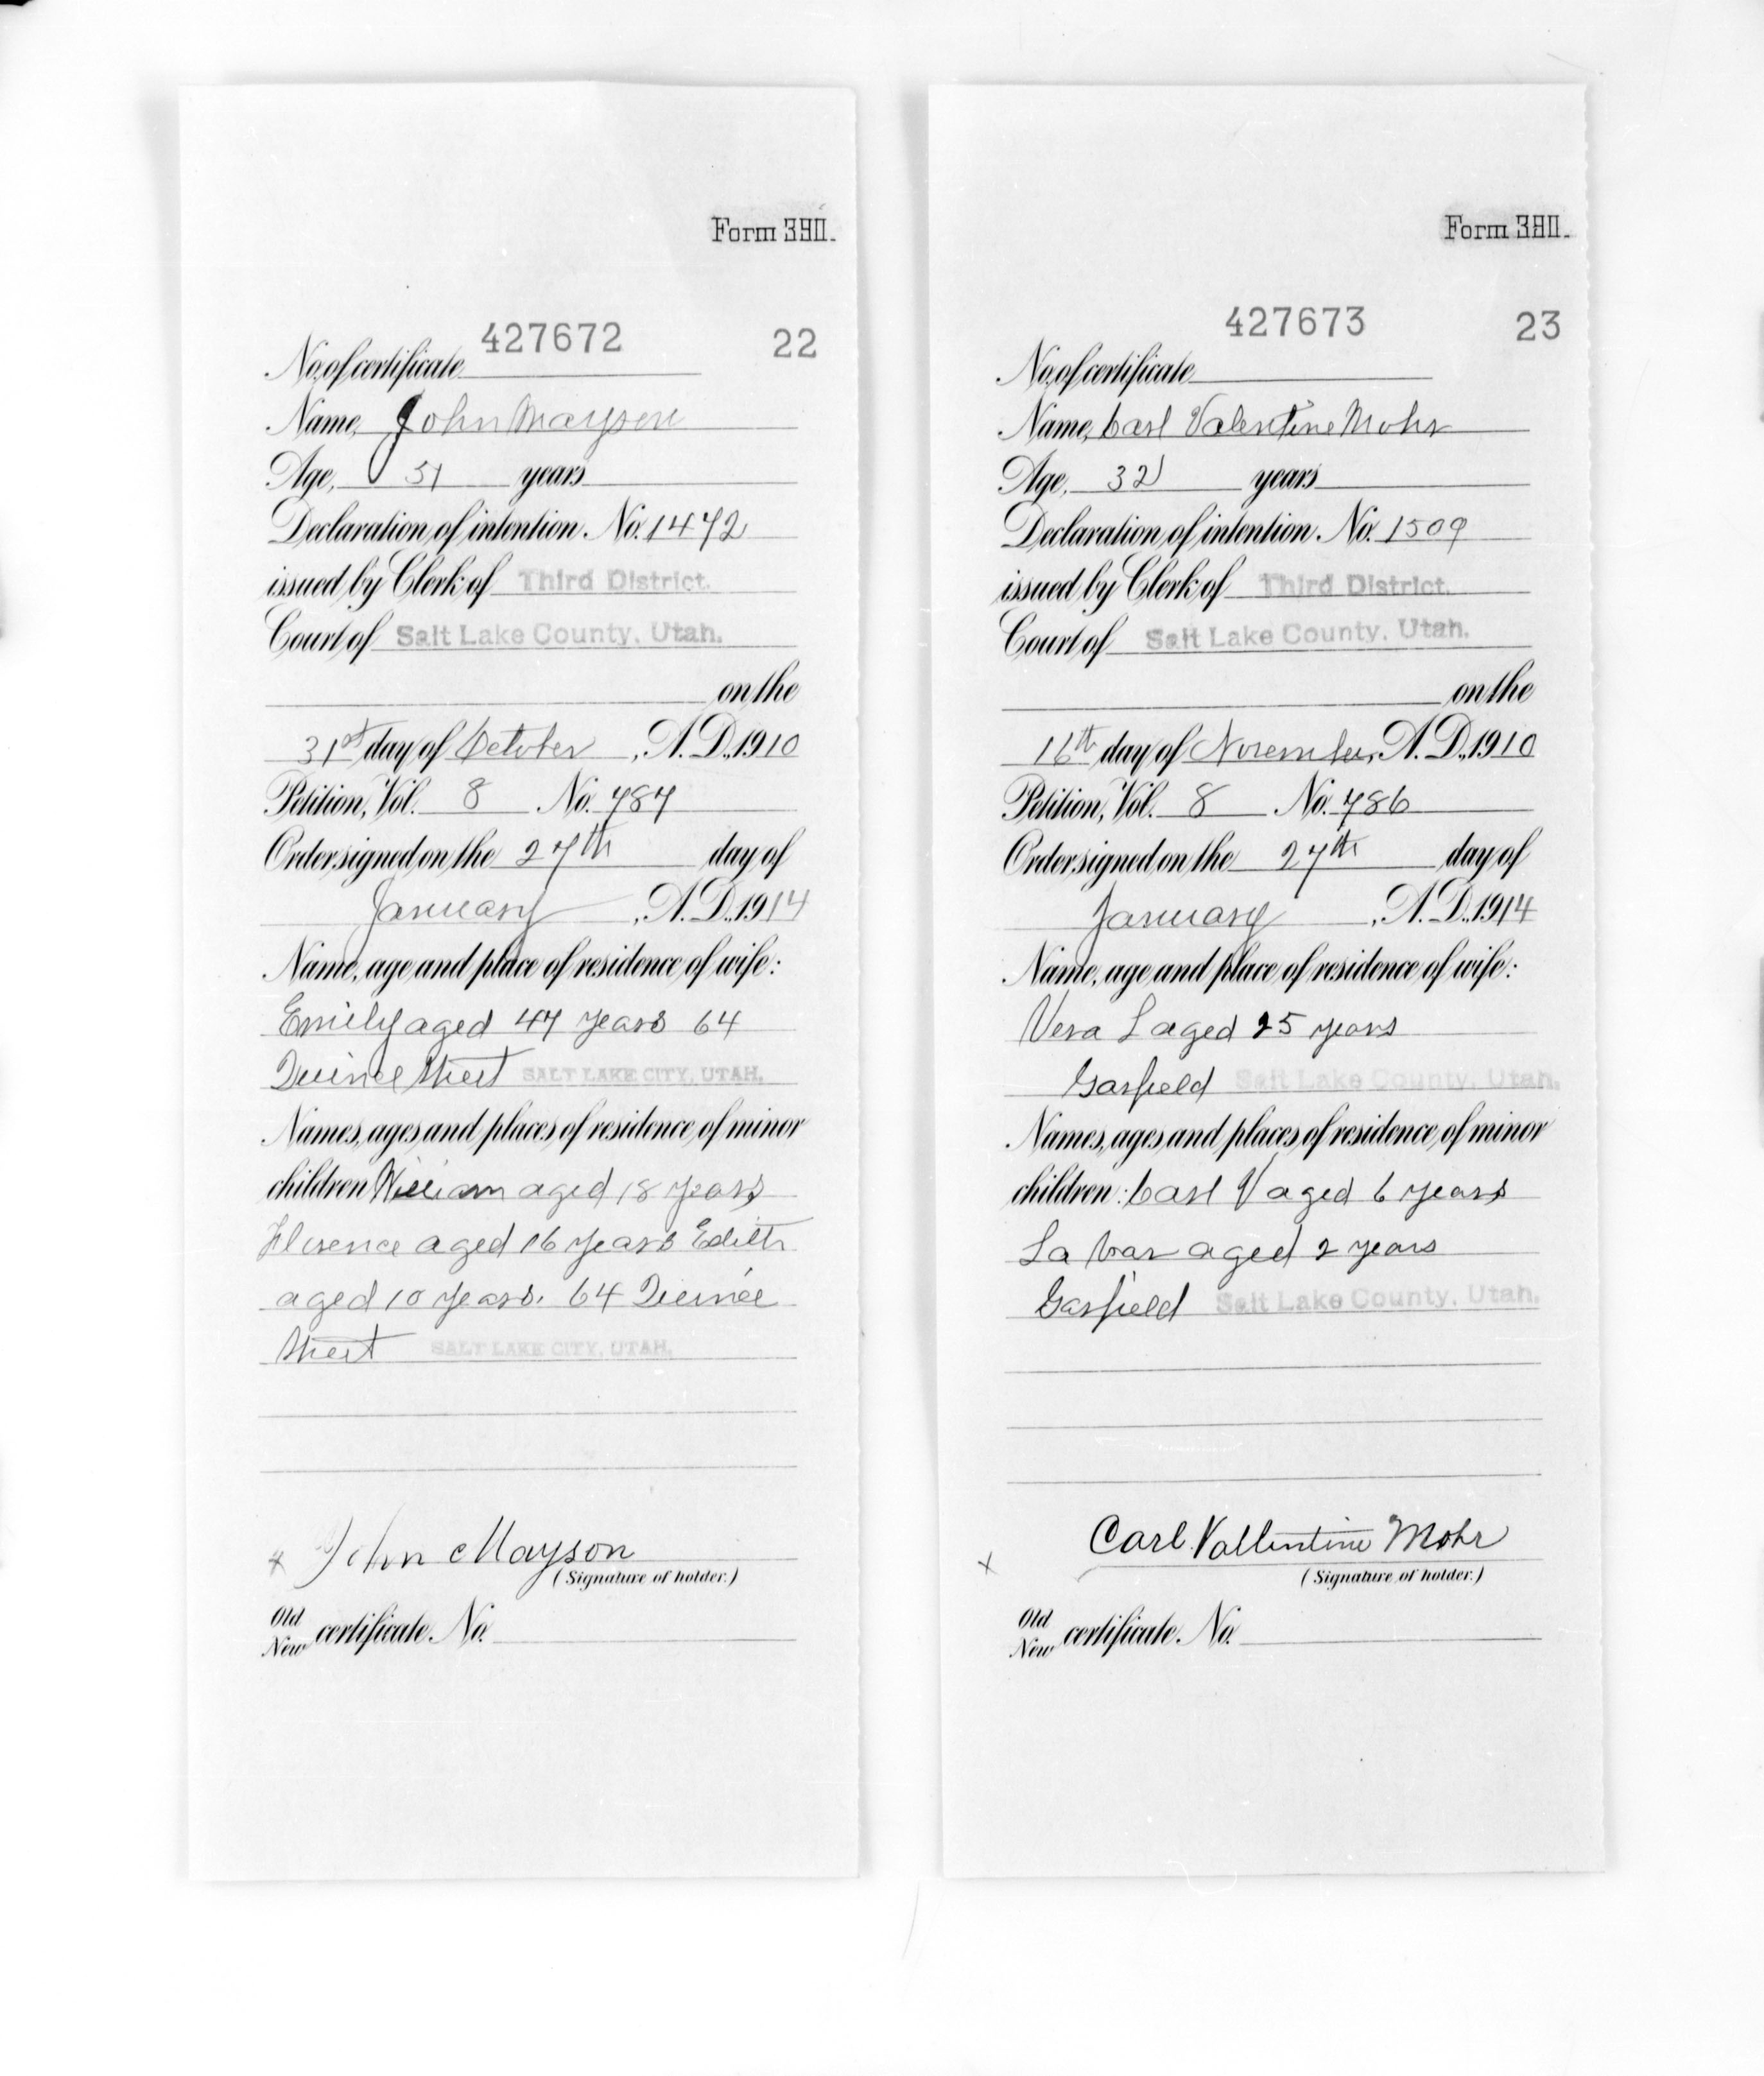 Form 380.
427672 22
No. of certificate
Name, John Mayson
Age, 51 years
Declaration of intention. No. 1472
issued by Clerk of Third District.
Court of Salt Lake County, Utah.
on the
31st day of October, A. D., 1910
Petition, Vol. 8 No. 787
Order signed on the 27th day of
January, A. D., 1914
Name, age and place of residence of wife:
Emily aged 47 years 64
Quince Street SALT LAKE CITY, UTAH.
Names, ages and places of residence of minor
children William aged 18 years
Florence aged 16 years Edith
aged 10 years. 64 Quince
Street SALT LAKE CITY, UTAH.
x John Mayson
(Signature of holder.)
Old
New certificate. No.
Form 380.
427673 23
No. of certificate
Name, Carl Valentine Mohr
Age, 32 years
Declaration of intention. No. 1509
issued by Clerk of Third District.
Court of Salt Lake County, Utah.
on the
16th day of November, A. D., 1910
Petition, Vol. 8 No. 786
Order signed on the 27th day of
January, A. D., 1914
Name, age and place of residence of wife:
Vera L aged 25 years
Garfield Salt Lake County, Utah.
Names, ages and places of residence of minor
children: Carl V aged 6 years
La Var aged 2 years
Garfield Salt Lake County, Utah.
x Carl Vallentine Mohr
(Signature of holder.)
Old
New certificate. No.